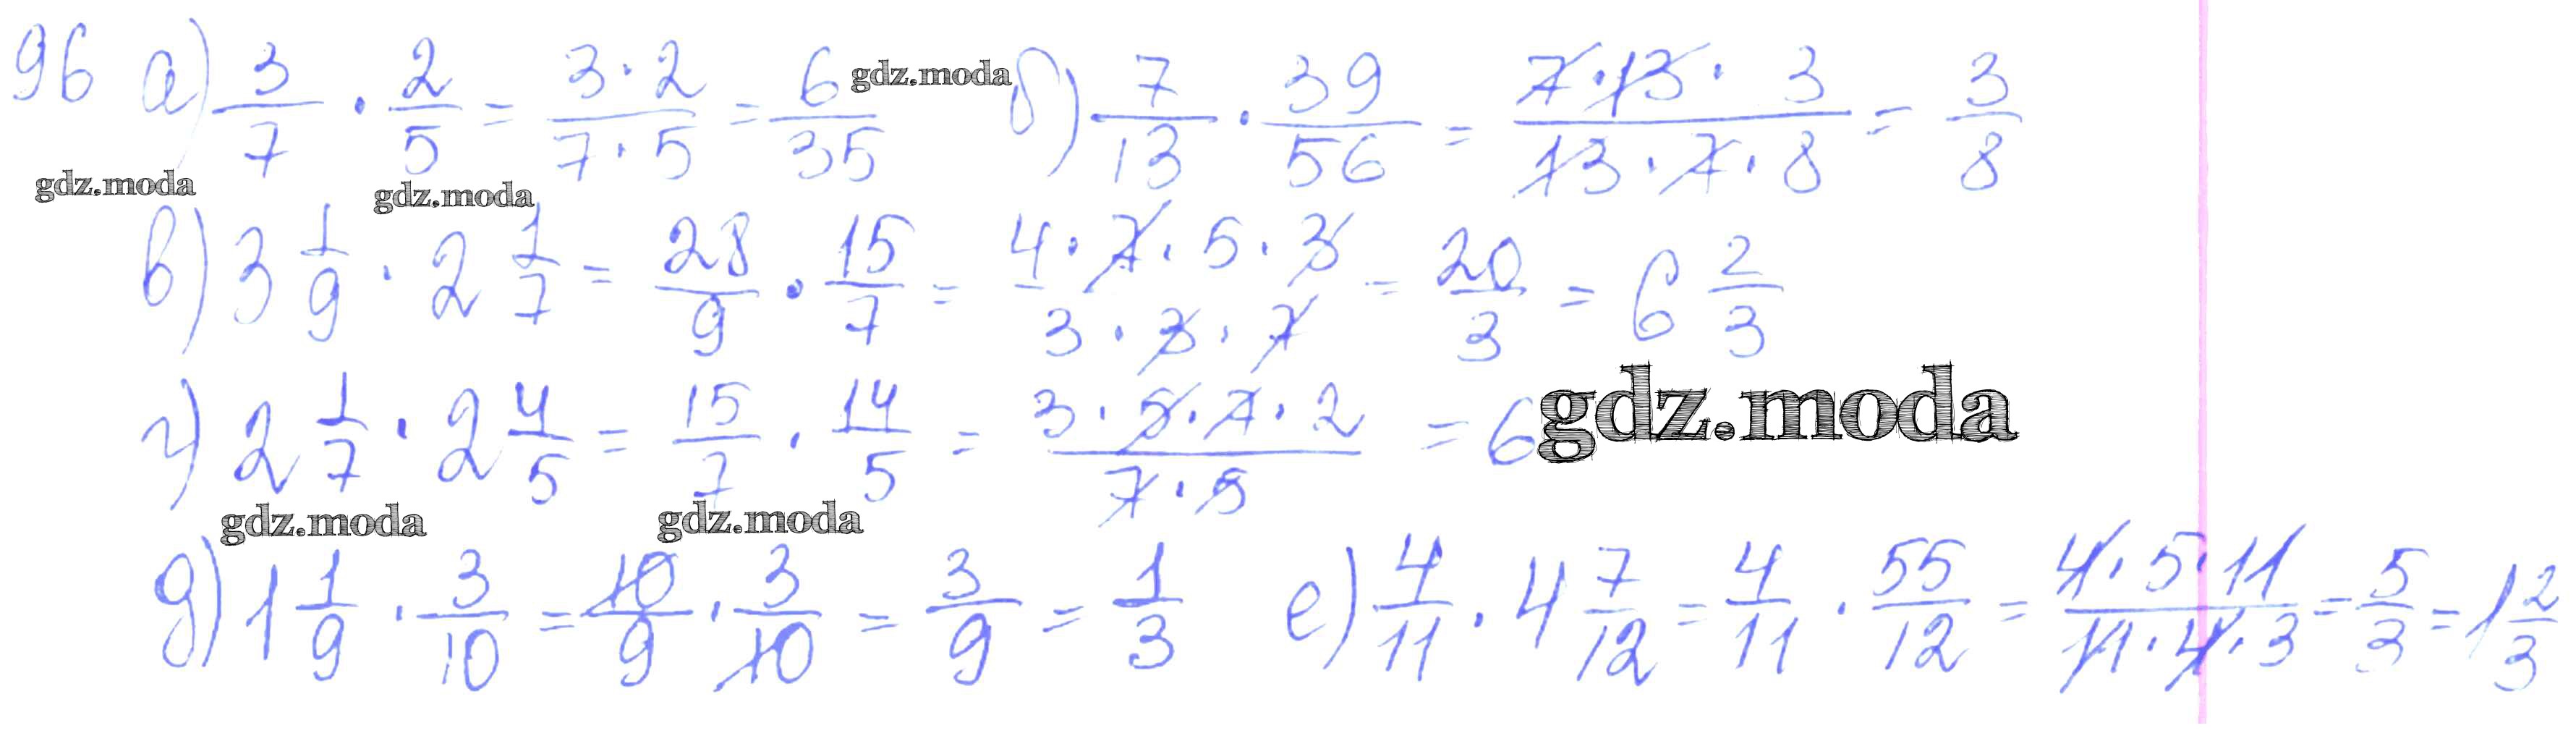 96 а) 3/7 · 2/5 = 3·2/7·5 = 6/35 gdz.moda б) 7/13 · 39/56 = 7·13·3/13·7·8 = 3/8
gdz.moda gdz.moda
в) 3 1/9 · 2 1/7 = 28/9 · 15/7 = 4·7·5·3/3·3·7 = 20/3 = 6 2/3
г) 2 1/7 · 2 4/5 = 15/7 · 14/5 = 3·5·7·2/7·5 = 6 gdz.moda
gdz.moda gdz.moda
д) 1 1/9 · 3/10 = 10/9 · 3/10 = 3/9 = 1/3 е) 4/11 · 4 7/12 = 4/11 · 55/12 = 4·5·11/11·4·3 = 5/3 = 1 2/3